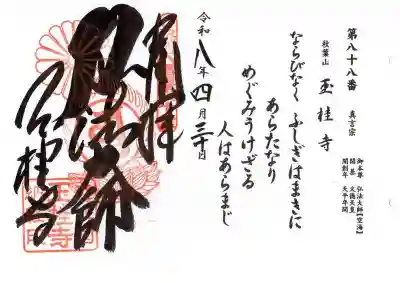 第八十八番 真言宗
秋葉山 玉桂寺
御本尊 弘法大師【空海】
開基 文徳天皇
開創年 天平年間
ならびなく ふしぎはまきに
あらたなり
めぐみうけざる
人はあらまじ
令和八年四月三十日
奉拝
弘法大師
玉桂寺